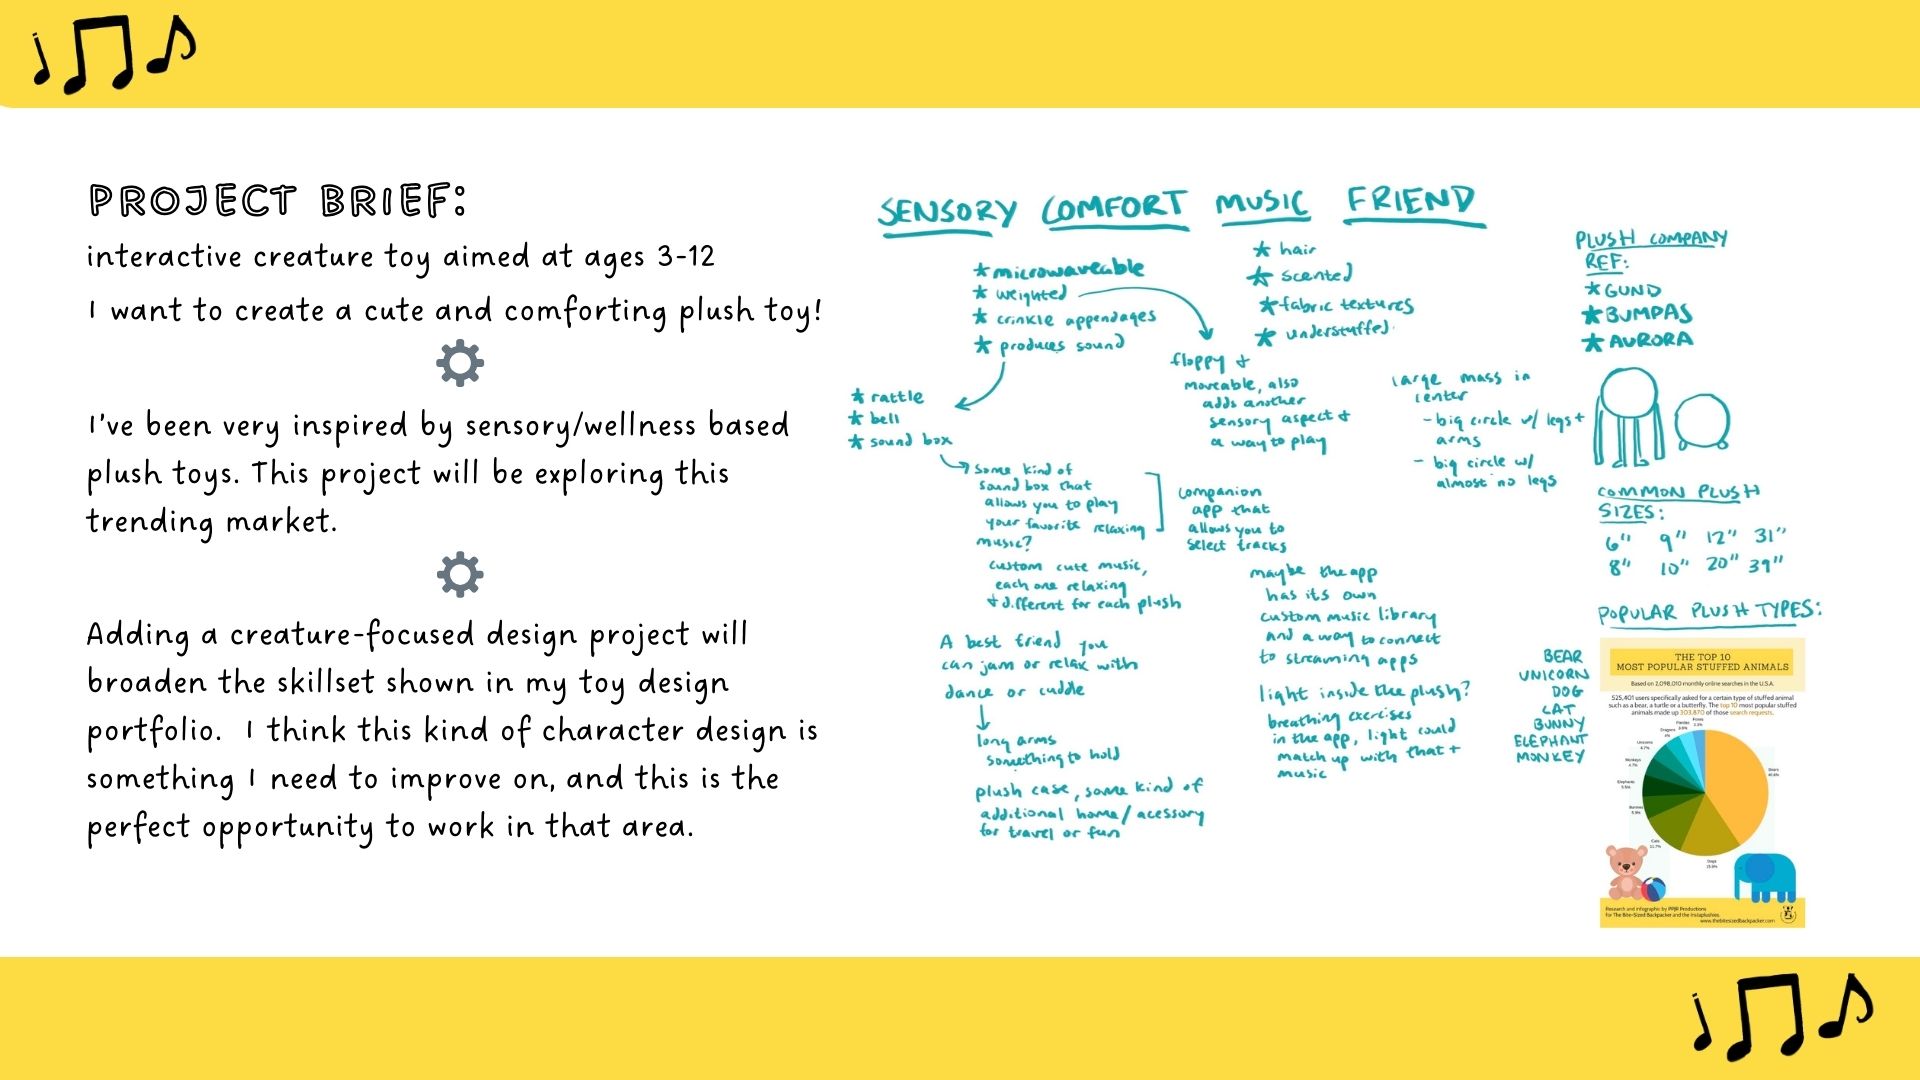 PROJECT BRIEF:
interactive creature toy aimed at ages 3-12
I want to create a cute and comforting plush toy!
I've been very inspired by sensory/wellness based
plush toys. This project will be exploring this
trending market.
Adding a creature-focused design project will
broaden the skillset shown in my toy design
portfolio. I think this kind of character design is
something I need to improve on, and this is the
perfect opportunity to work in that area.
SENSORY COMFORT MUSIC FRIEND
* microwaveable
* weighted
* crinkle appendages
* produces sound
* hair
* scented
* fabric textures
* understuffed
* rattle
* bell
* sound box
floppy +
moveable, also
adds another
sensory aspect +
a way to play
large mass in
center
- big circle w/ legs +
arms
- big circle w/
almost no legs
some kind of
sound box that
allows you to play
your favorite relaxing
music?
companion
app that
allows you to
select tracks
custom cute music,
each one relaxing
+ different for each plush
maybe the app
has its own
custom music library
and a way to connect
to streaming apps
A best friend you
can jam or relax with
dance or cuddle
long arms
something to hold
light inside the plush?
breathing exercises
in the app, light could
match up with that +
music
plush case, some kind of
additional home/ acessory
for travel or fun
PLUSH COMPANY
REF:
* GUND
* BUMPAS
* AURORA
COMMON PLUSH
SIZES:
6" 9" 12" 31"
8" 10" 20" 39"
POPULAR PLUSH TYPES:
BEAR
UNICORN
DOG
CAT
BUNNY
ELEPHANT
MONKEY
THE TOP 10
MOST POPULAR STUFFED ANIMALS
Based on 2,098,010 monthly online searches in the U.S.A.
525,401 users specifically asked for a certain type of stuffed animal
such as a bear, a turtle or a butterfly. The top 10 most popular stuffed
animals made up 303,870 of those search requests.
Foxes
Pandas
Dragons
Unicorns
4.7%
Monkeys
4.7%
Elephants
5.5%
Bunnies
Cats
11.7%
Dogs
Bears
Research and infographic by PPJR Productions
for The Bite-Sized Backpacker and the Instaplushies.
www.thebitesizedbackpacker.com